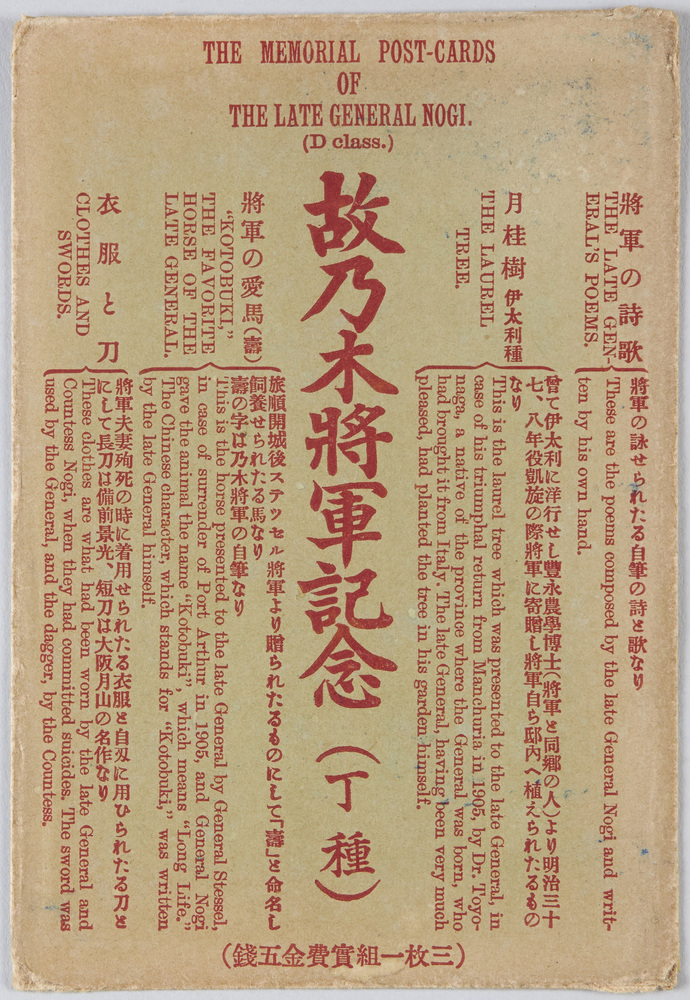 THE MEMORIAL POST-CARDS
OF
THE LATE GENERAL NOGI.
(D class.)
故乃木將軍記念(丁種)
將軍の詩歌
THE LATE GEN-
ERAL'S POEMS.
將軍の詠せられたる自筆の詩と歌なり
These are the poems composed by the late General Nogi and writ-
ten by his own hand.
月桂樹 伊太利種
THE LAUREL
TREE.
曾て伊太利に洋行せし豐永農學博士(將軍と同鄕の人)より明治三十
七、八年役凱旋の際將軍に寄贈し將軍自ら邸內へ植えられたるもの
なり
This is the laurel tree which was presented to the late General, in
case of his triumphal return from Manchuria in 1905, by Dr. Toyo-
naga, a native of the province where the General was born, who
had brought it from Italy. The late General, having been very much
pleased, had planted the tree in his garden himself.
將軍の愛馬(壽)
"KOTOBUKI,"
THE FAVORITE
HORSE OF THE
LATE GENERAL.
旅順開城後ステッセル將軍より贈られたるものにして「壽」と命名し
飼養せられたる馬なり
壽の字は乃木將軍の自筆なり
This is the horse presented to the late General by General Stessel,
in case of surrender of Port Arthur in 1905, and General Nogi
gave the animal the name "Kotobuki", which means "Long Life."
The Chinese character, which stands for "Kotobuki," was written
by the late General himself.
衣服と刀
CLOTHES AND
SWORDS.
將軍夫妻殉死の時に着用せられたる衣服と自刄に用ひられたる刀と
にして長刀は備前景光、短刀は大阪月山の名作なり
These clothes are what had been worn by the late General and
Countess Nogi, when they had committed suicides. The sword was
used by the General, and the dagger, by the Countess.
(三枚一組實費金五錢)